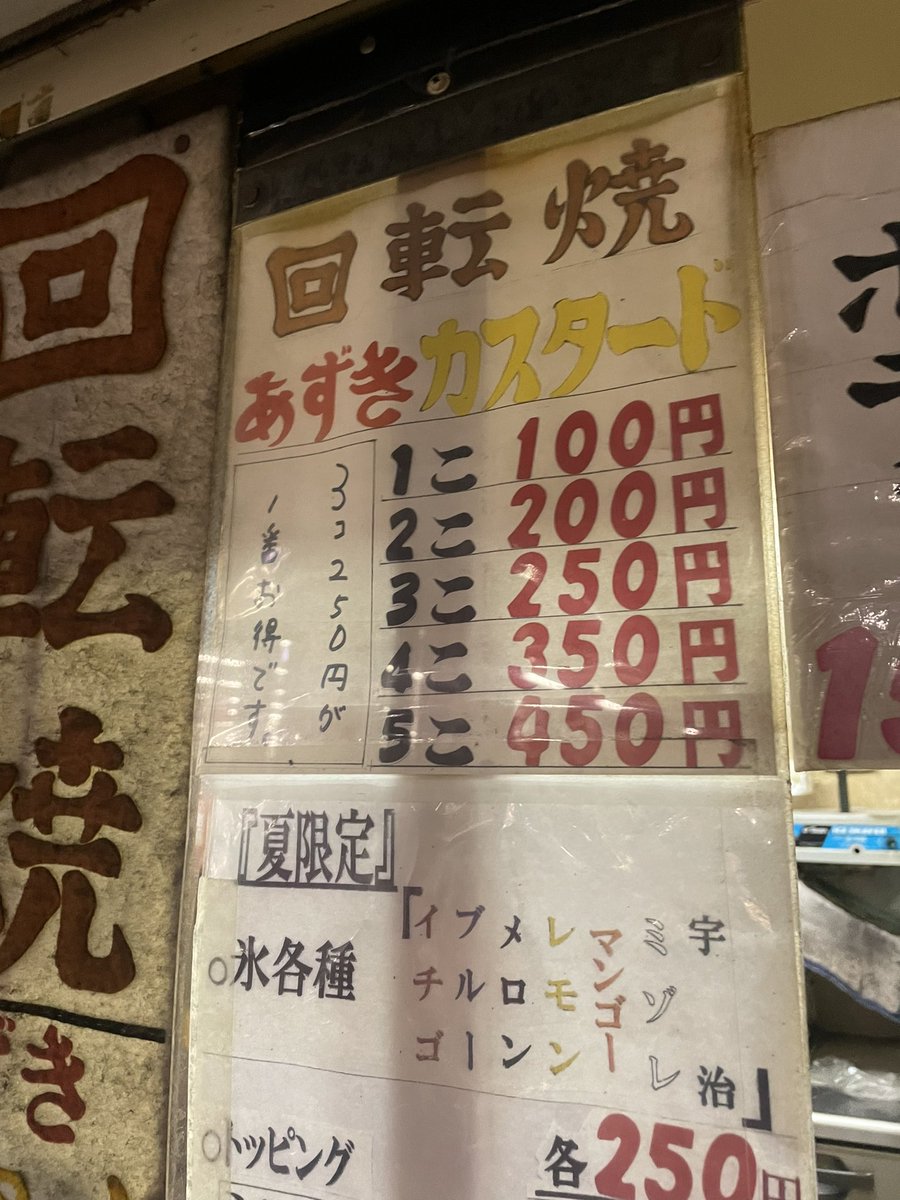 回転焼
ずき
回転焼
あずきカスタード
1こ 100円
2こ 200円
3こ 250円
4こ 350円
5こ 450円
3コ250円が
1番お得です。
『夏限定』
○氷各種
「イチゴ
ブルー
メロン
レモン
マンゴー
ミゾレ
宇治」
○トッピング
各250円